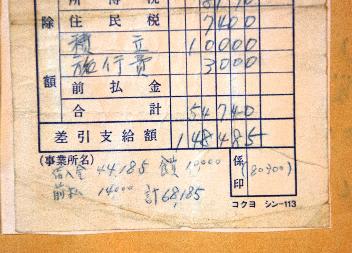 所得税
除 住民税 7400
積立 10000
旅行費 3000
額 前払金
合計 54740
差引支給額 148485
(事業所名) 係印 (80300)
借入金 44,185 損 10000
前払 14000 計 68,185
コクヨ シン-113